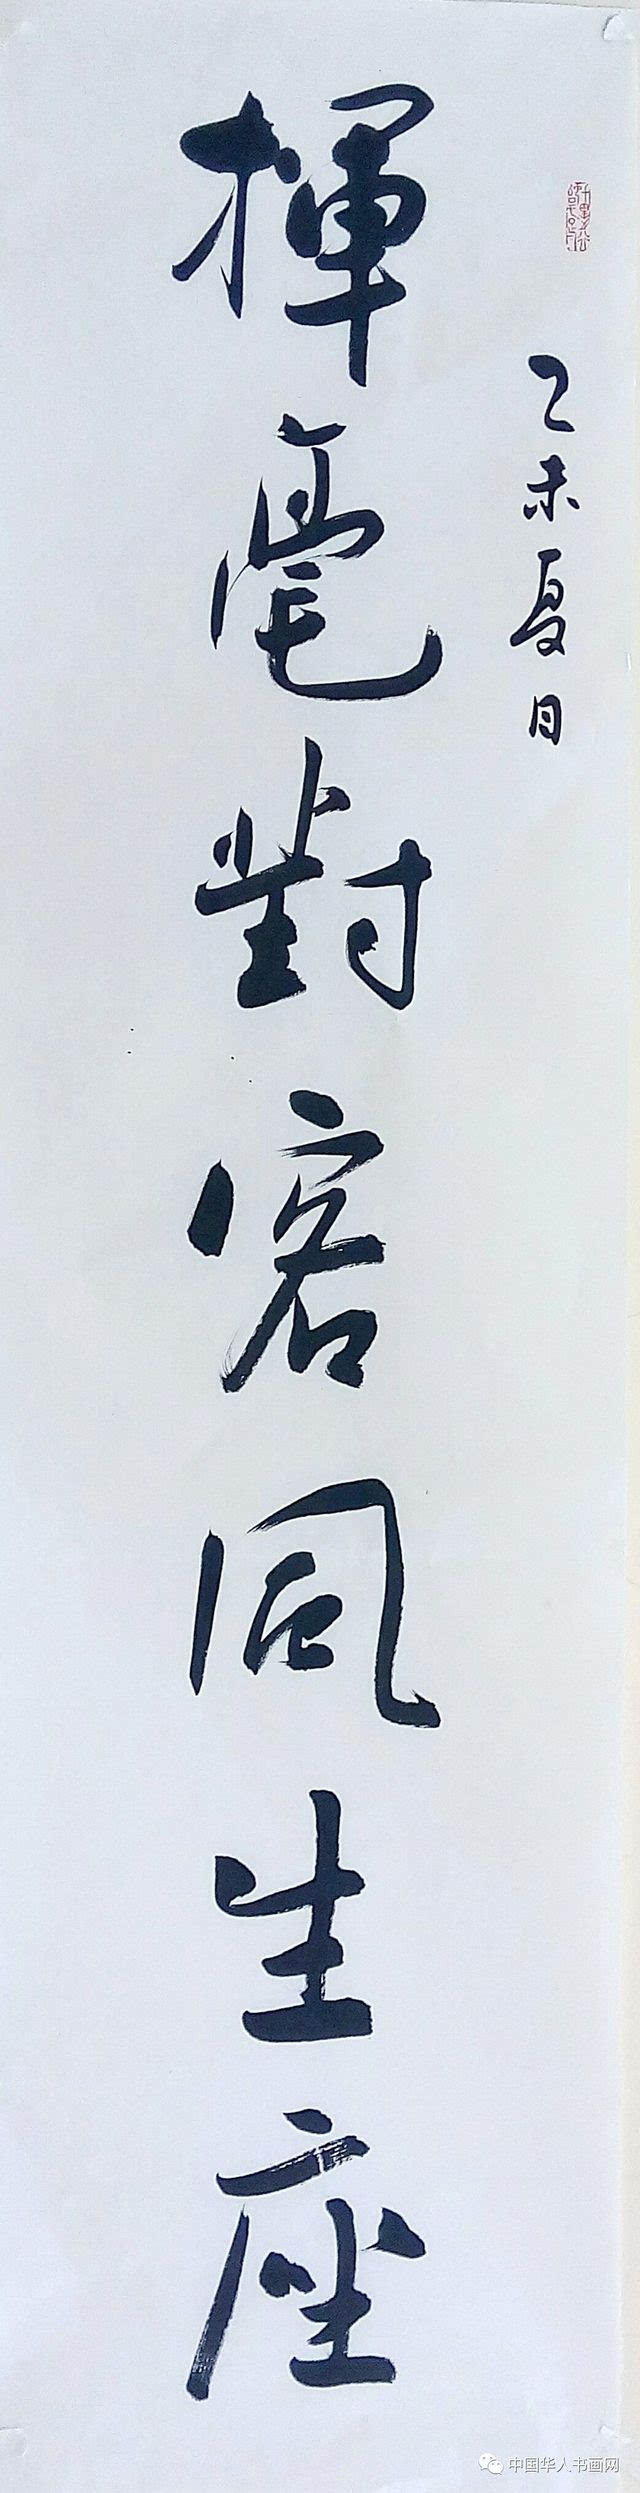 乙未夏日
揮毫對客風生座
中国华人书画网